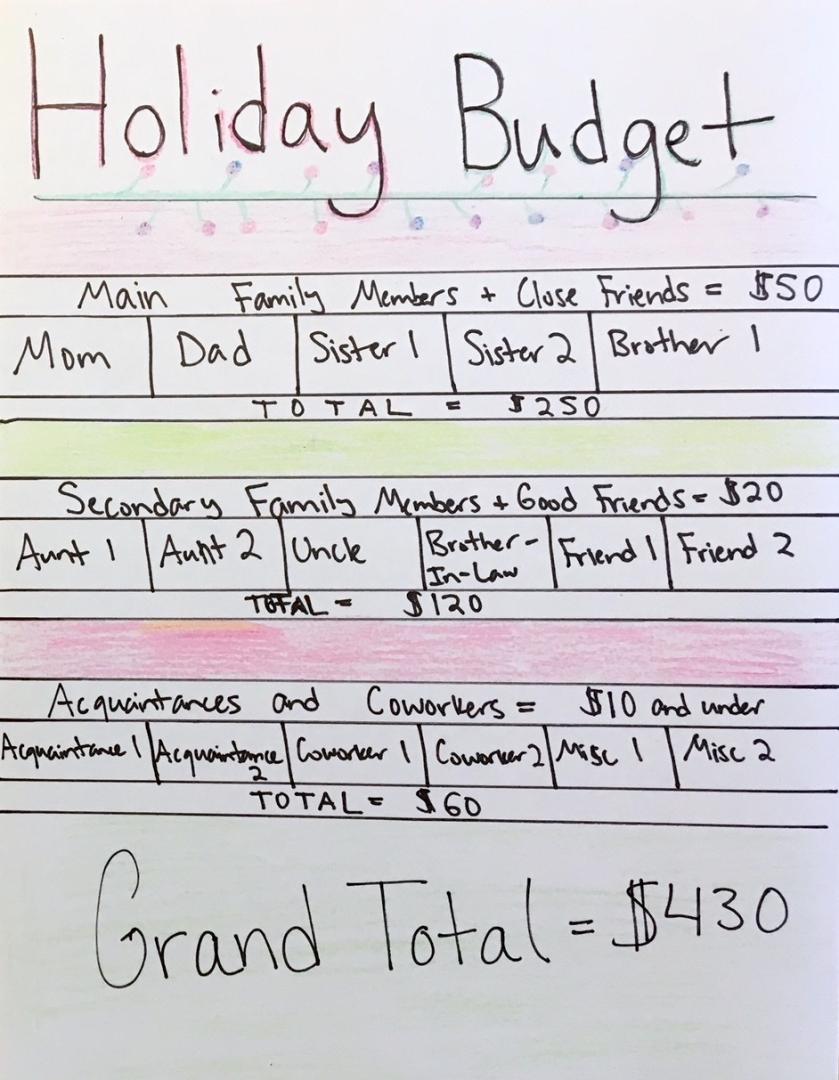 Holiday Budget
Main Family Members + Close Friends = $50
Mom Dad Sister 1 Sister 2 Brother 1
TOTAL = $250
Secondary Family Members + Good Friends = $20
Aunt 1 Aunt 2 Uncle Brother-In-Law Friend 1 Friend 2
TOTAL = $120
Acquaintances and Coworkers = $10 and under
Acquaintance 1 Acquaintance 2 Coworker 1 Coworker 2 Misc 1 Misc 2
TOTAL = $60
Grand Total = $430